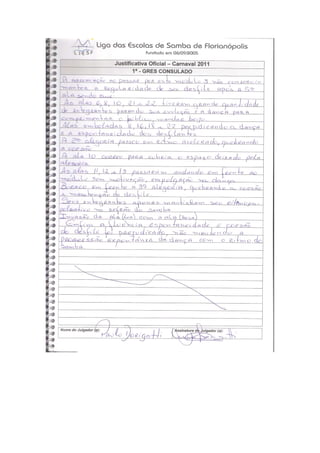 Liga das Escolas de Samba de Florianópolis
Fundada em 06/09/2005
Justificativa Oficial – Carnaval 2011
1ª - GRES CONSULADO
A agremiação ao passar por este módulo 3 não conseguiu
manter a regularidade de seu desfile após a 5ª
ala sendo que:
As alas 6, 8, 10, 21 e 22 tiveram grande quantidade
de integrantes parando sua evolução e a dança para
cumprimentar o público, mandar beijo.
Alas emboladas 8, 16, 17 e 22 prejudicando a dança
e a espontaneidade dos desfilantes
A 2ª alegoria passou em ritmo acelerado, quebrando
a coesão
A ala 10 correu para cobrir o espaço deixado pela
alegoria
As alas 11, 12 e 13 passaram andando em frente ao
módulo sem motivação, empolgação ou dança
Buraco em frente a 3ª alegoria, quebrando a coesão
e manutenção do desfile
Seus integrantes apenas
ao refrão do samba
Invasão da ala
a fluência, espontaneidade e coesão
do desfile foi prejudicado, não mantendo a
progressão espontânea da dança com o ritmo do
samba.
Nome do Julgador (a): Paulo Dorigatti Assinatura do Julgador (a):